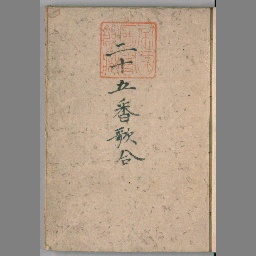 二十五番歌合